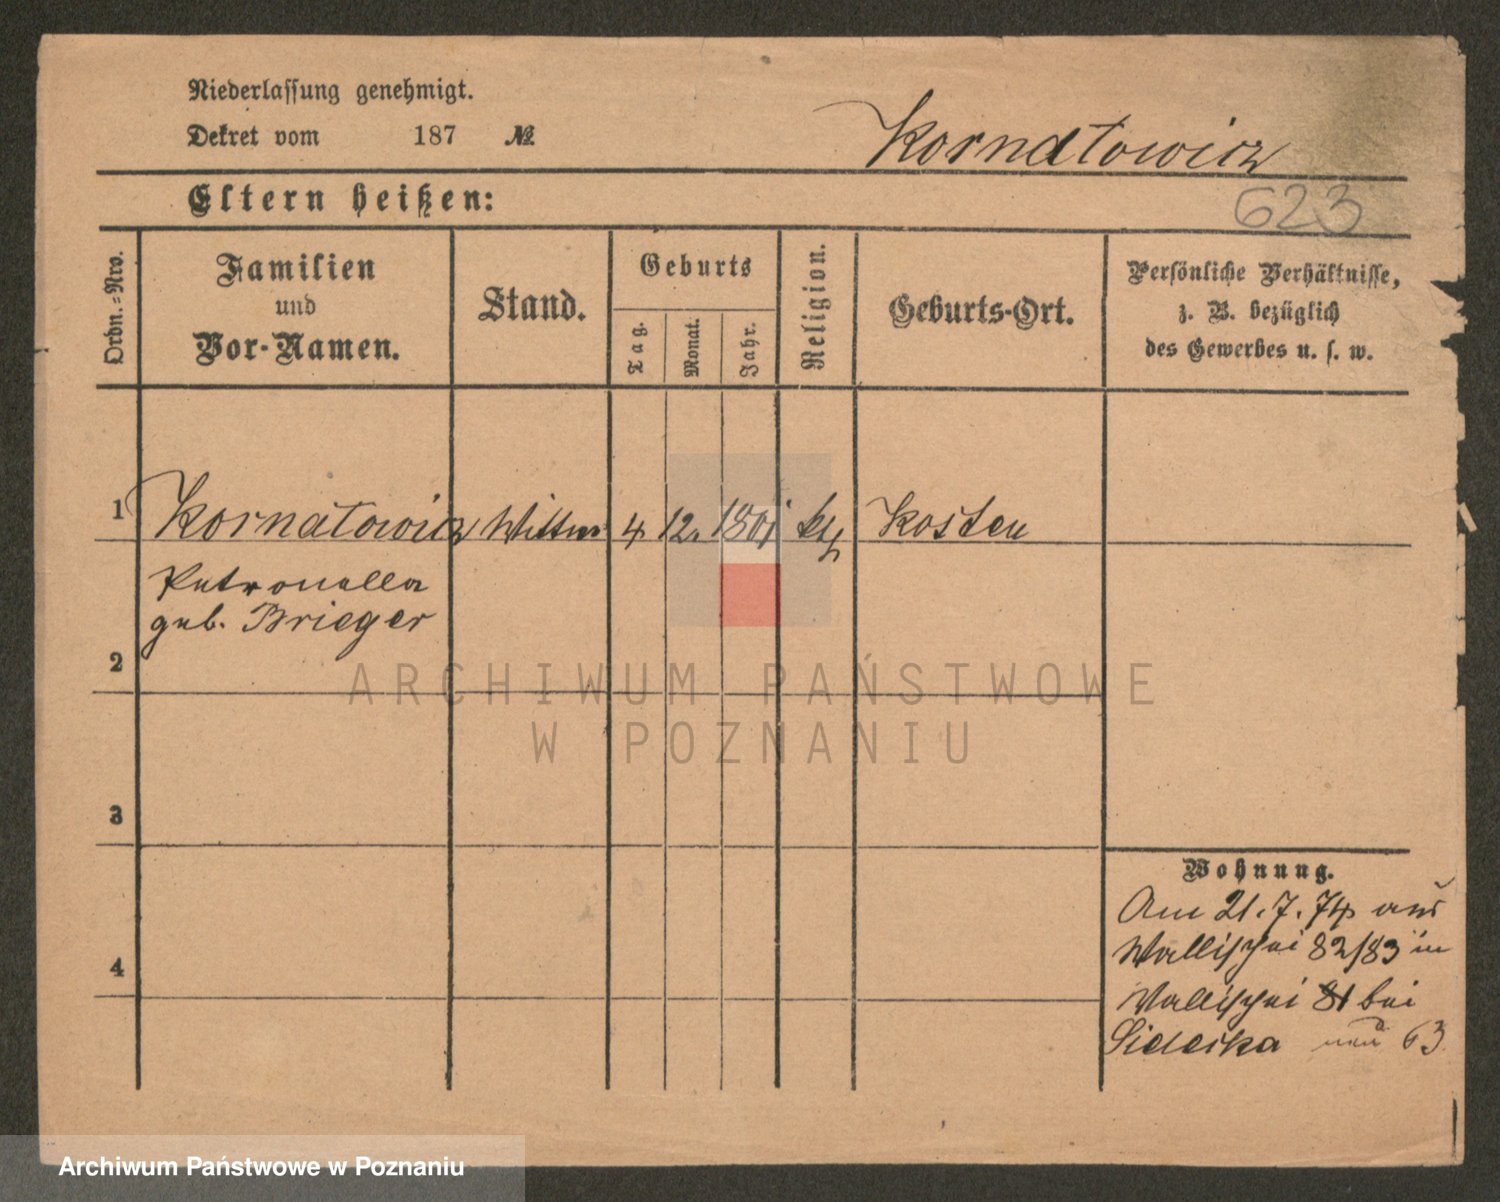 Niederlassung genehmigt.
Dekret vom 187 №
Kornatowicz
Eltern heißen:
623
Ordn.=Nro.
Familien
und
Vor-Namen.
Stand.
Geburts
Tag.
Monat.
Jahr.
Religion.
Geburts-Ort.
Persönliche Verhältnisse,
z. B. bezüglich
des Gewerbes u. s. w.
1 Kornatowicz Wittwe 4 12. 1801 kth Kosten
Petronella
geb. Brieger
2
3
4
Wohnung.
Am 21.7.74 aus
Wallischei 82/83 in
Wallischei 81 bei
63
ARCHIWUM PAŃSTWOWE
W POZNANIU
Archiwum Państwowe w Poznaniu